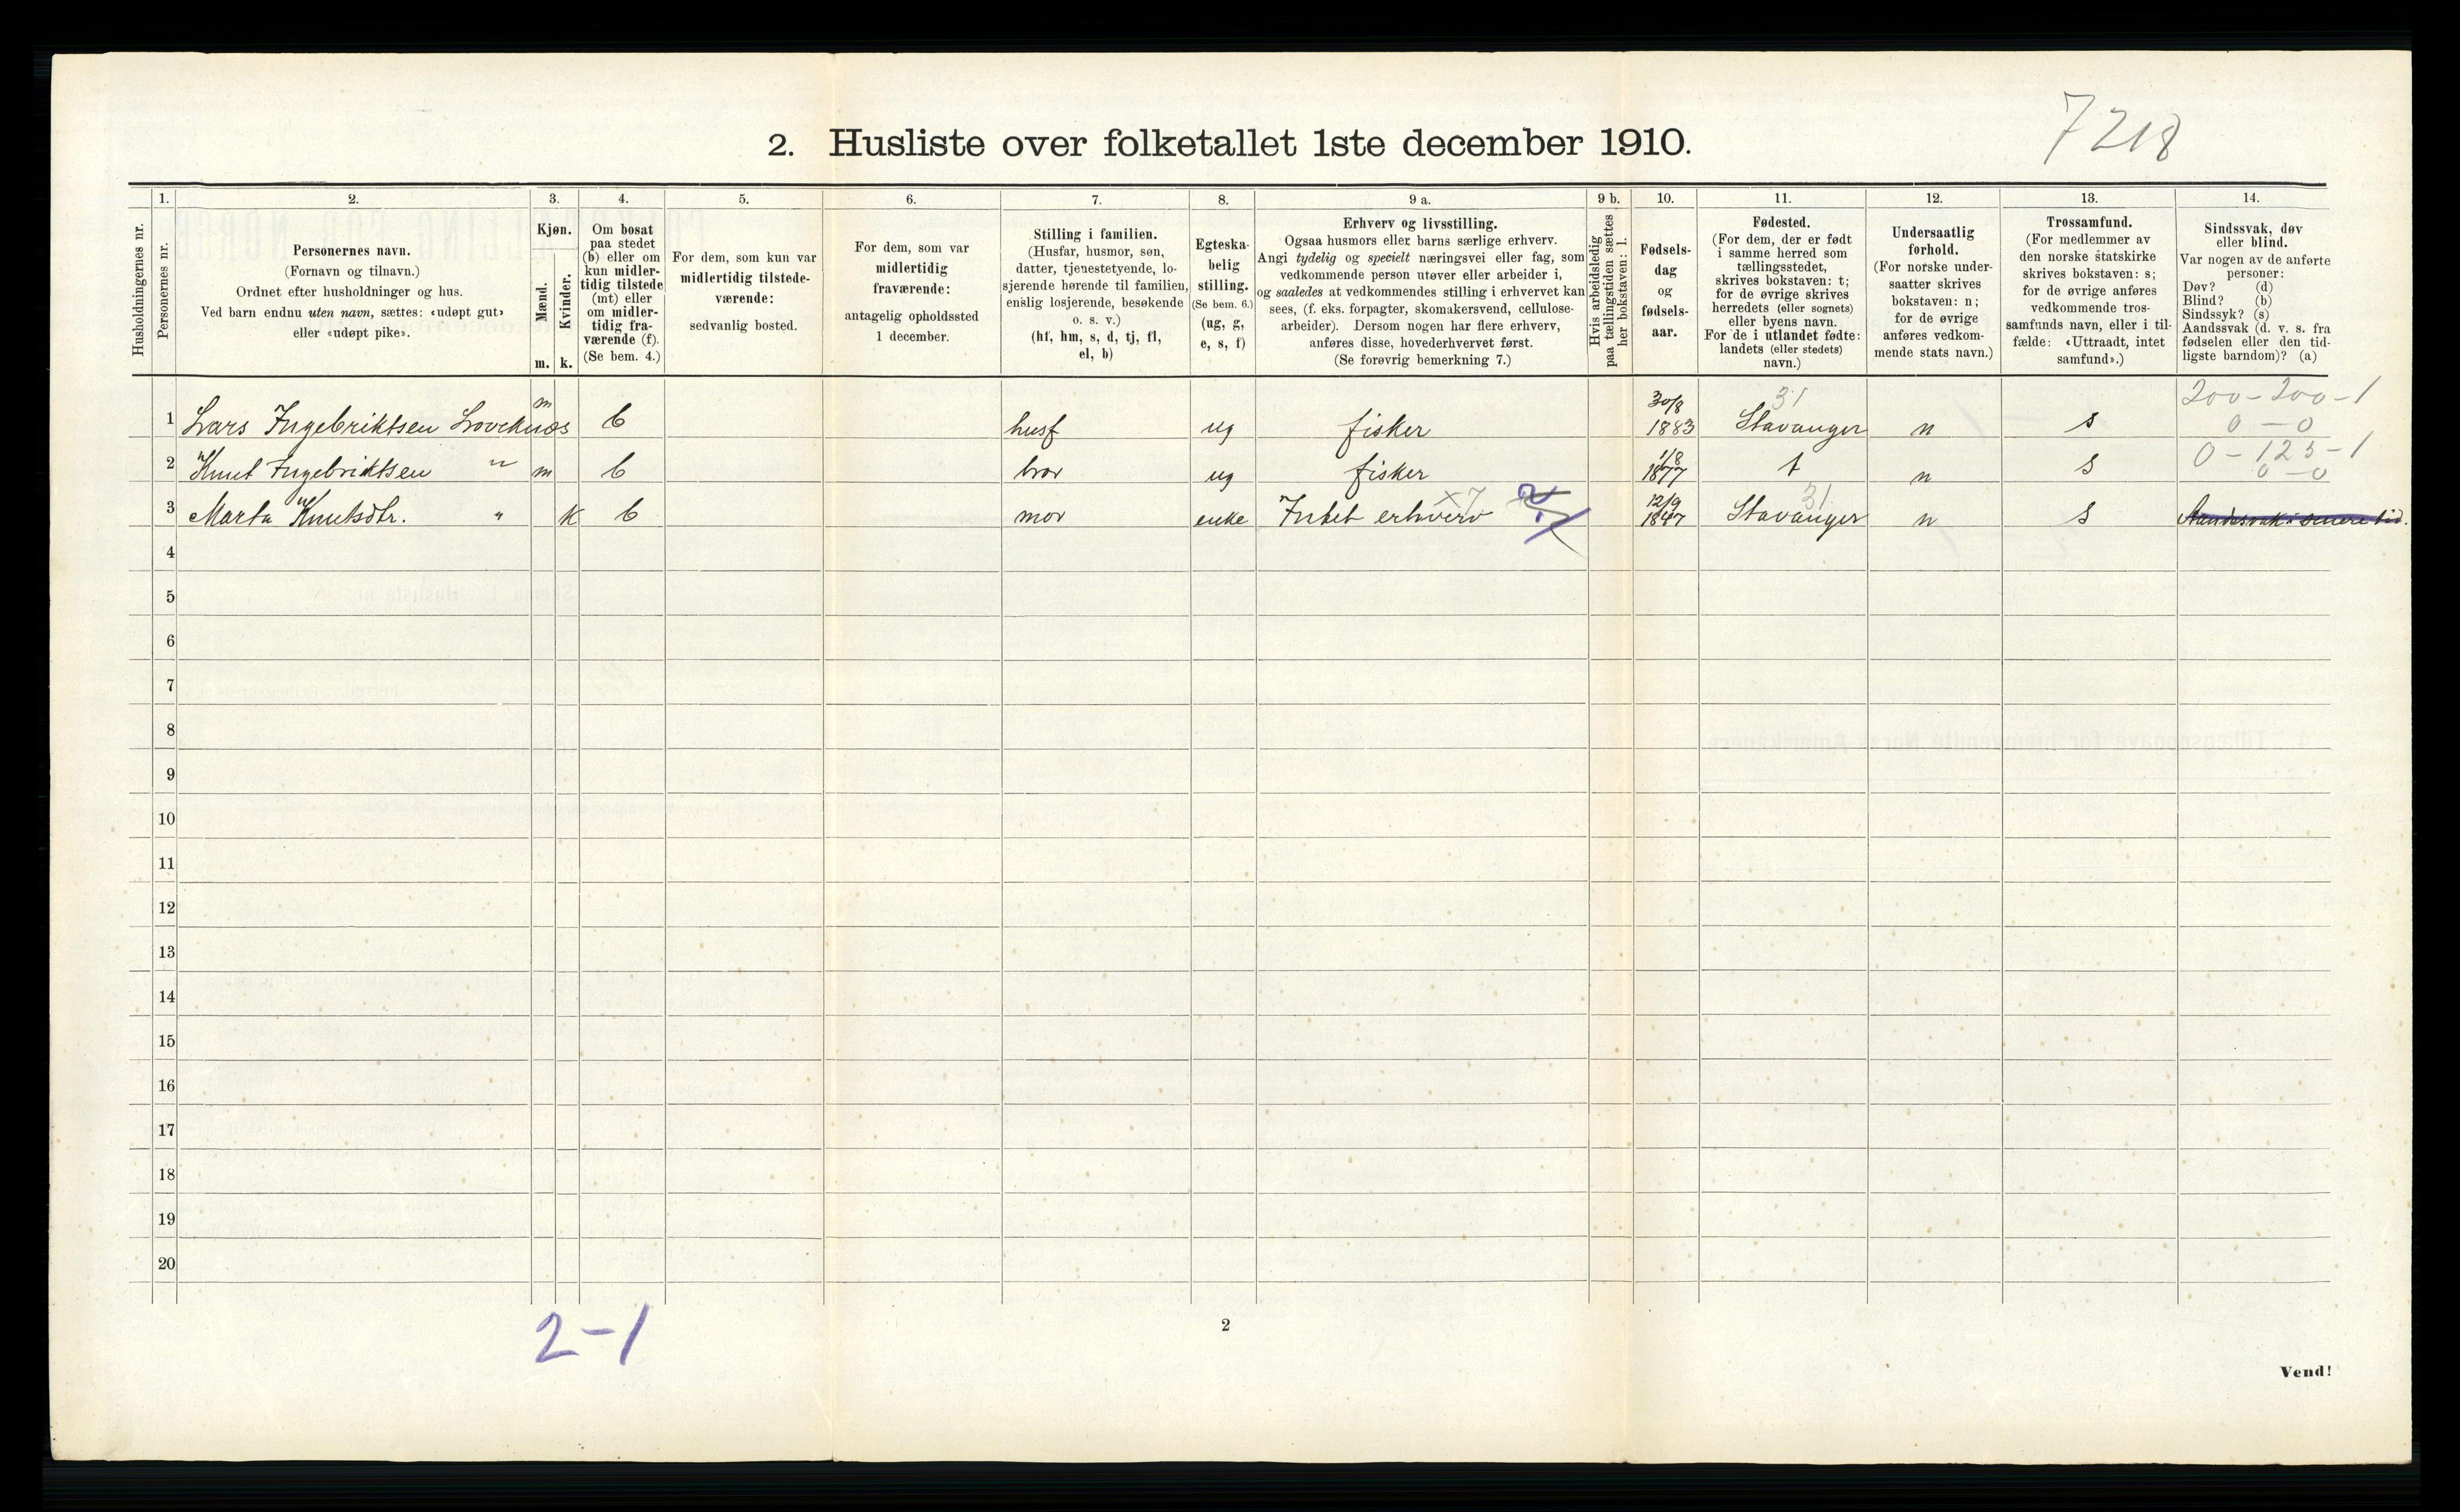 7218
2. Husliste over folketallet 1ste december 1910.
Husholdningernes nr.
1.
Personernes nr.
2.
Personernes navn.
(Fornavn og tilnavn.)
Ordnet efter husholdninger og hus.
Ved barn endnu uten navn, sættes: «udøpt gut»
eller «udøpt pike».
3.
Kjøn.
Mænd.
Kvinder.
m. k.
4.
Om bosat
paa stedet
(b) eller om
kun midler-
tidig tilstede
(mt) eller
om midler-
tidig fra-
værende (f).
(Se bem. 4.)
5.
For dem, som kun var
midlertidig tilstede-
værende:
sedvanlig bosted.
6.
For dem, som var
midlertidig
fraværende:
antagelig opholdssted
1 december.
7.
Stilling i familien.
(Husfar, husmor, søn,
datter, tjenestetyende, lo-
sjerende hørende til familien,
enslig losjerende, besøkende
o. s. v.)
(hf, hm, s, d, tj, fl,
el, b)
8.
Egteska-
belig
stilling.
(Se bem. 6.)
(ug, g,
e, s, f)
9 a.
Erhverv og livsstilling.
Ogsaa husmors eller barns særlige erhverv.
Angi tydelig og specielt næringsvei eller fag, som
vedkommende person utøver eller arbeider i,
og saaledes at vedkommendes stilling i erhvervet kan
sees, (f. eks. forpagter, skomakersvend, cellulose-
arbeider). Dersom nogen har flere erhverv,
anføres disse, hovederhvervet først.
(Se forøvrig bemerkning 7.)
9 b.
Hvis arbeidsledig
paa tællingstiden sættes
her bokstaven: l.
10.
Fødsels-
dag
og
fødsels-
aar.
11.
Fødested.
(For dem, der er født
i samme herred som
tællingsstedet,
skrives bokstaven: t;
for de øvrige skrives
herredets (eller sognets)
eller byens navn.
For de i utlandet fødte:
landets (eller stedets)
navn.)
12.
Undersaatlig
forhold.
(For norske under-
saatter skrives
bokstaven: n;
for de øvrige
anføres vedkom-
mende stats navn.)
13.
Trossamfund.
(For medlemmer av
den norske statskirke
skrives bokstaven: s;
for de øvrige anføres
vedkommende tros-
samfunds navn, eller i til-
fælde: «Uttraadt, intet
samfund».)
14.
Sindssvak, døv
eller blind.
Var nogen av de anførte
personer:
Døv? (d)
Blind? (b)
Sindssyk? (s)
Aandssvak (d. v. s. fra
fødselen eller den tid-
ligste barndom)? (a)
1 Lars Ingebriktsen m b husf ug fisker 30/8 1883 31 Stavanger n s 200-200-1 0-0
2 Knut Ingebriktsen " m b bror ug fisker 1/8 1877 t n s 0-125-1 0-0
3 Marta Knutsdtr. " k b mor enke Intet erhverv x7 12/9 1847 31 Stavanger n s Aandssvak i senere tid.
4
5
6
7
8
9
10
11
12
13
14
15
16
17
18
19
20
2-1
2
Vend!